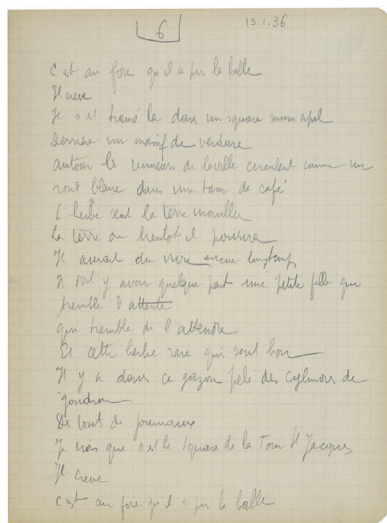 6
13.1.36
C'est au foie qu'il a pris la balle
Il crève
Je s'est traîné là dans un square municipal
Derrière un massif de verdure
autour les rumeurs de la ville circulent comme un
rond blanc dans une tasse de café
L'herbe sent la terre mouillée
La terre ou bientôt il pourrira
Il aurait du vivre encore longtemps
Il doit y avoir quelque part une petite fille qui
tremble d'attente
qui tremble de l'attendre
Et cette herbe rare qui sent bon
Il y a dans ce gazon pelé des cylindres de
goudron
Des bouts de journaux
Je crois que c'est le square de la Tour St Jacques
Il crève
c'est au foie qu'il a pris la balle